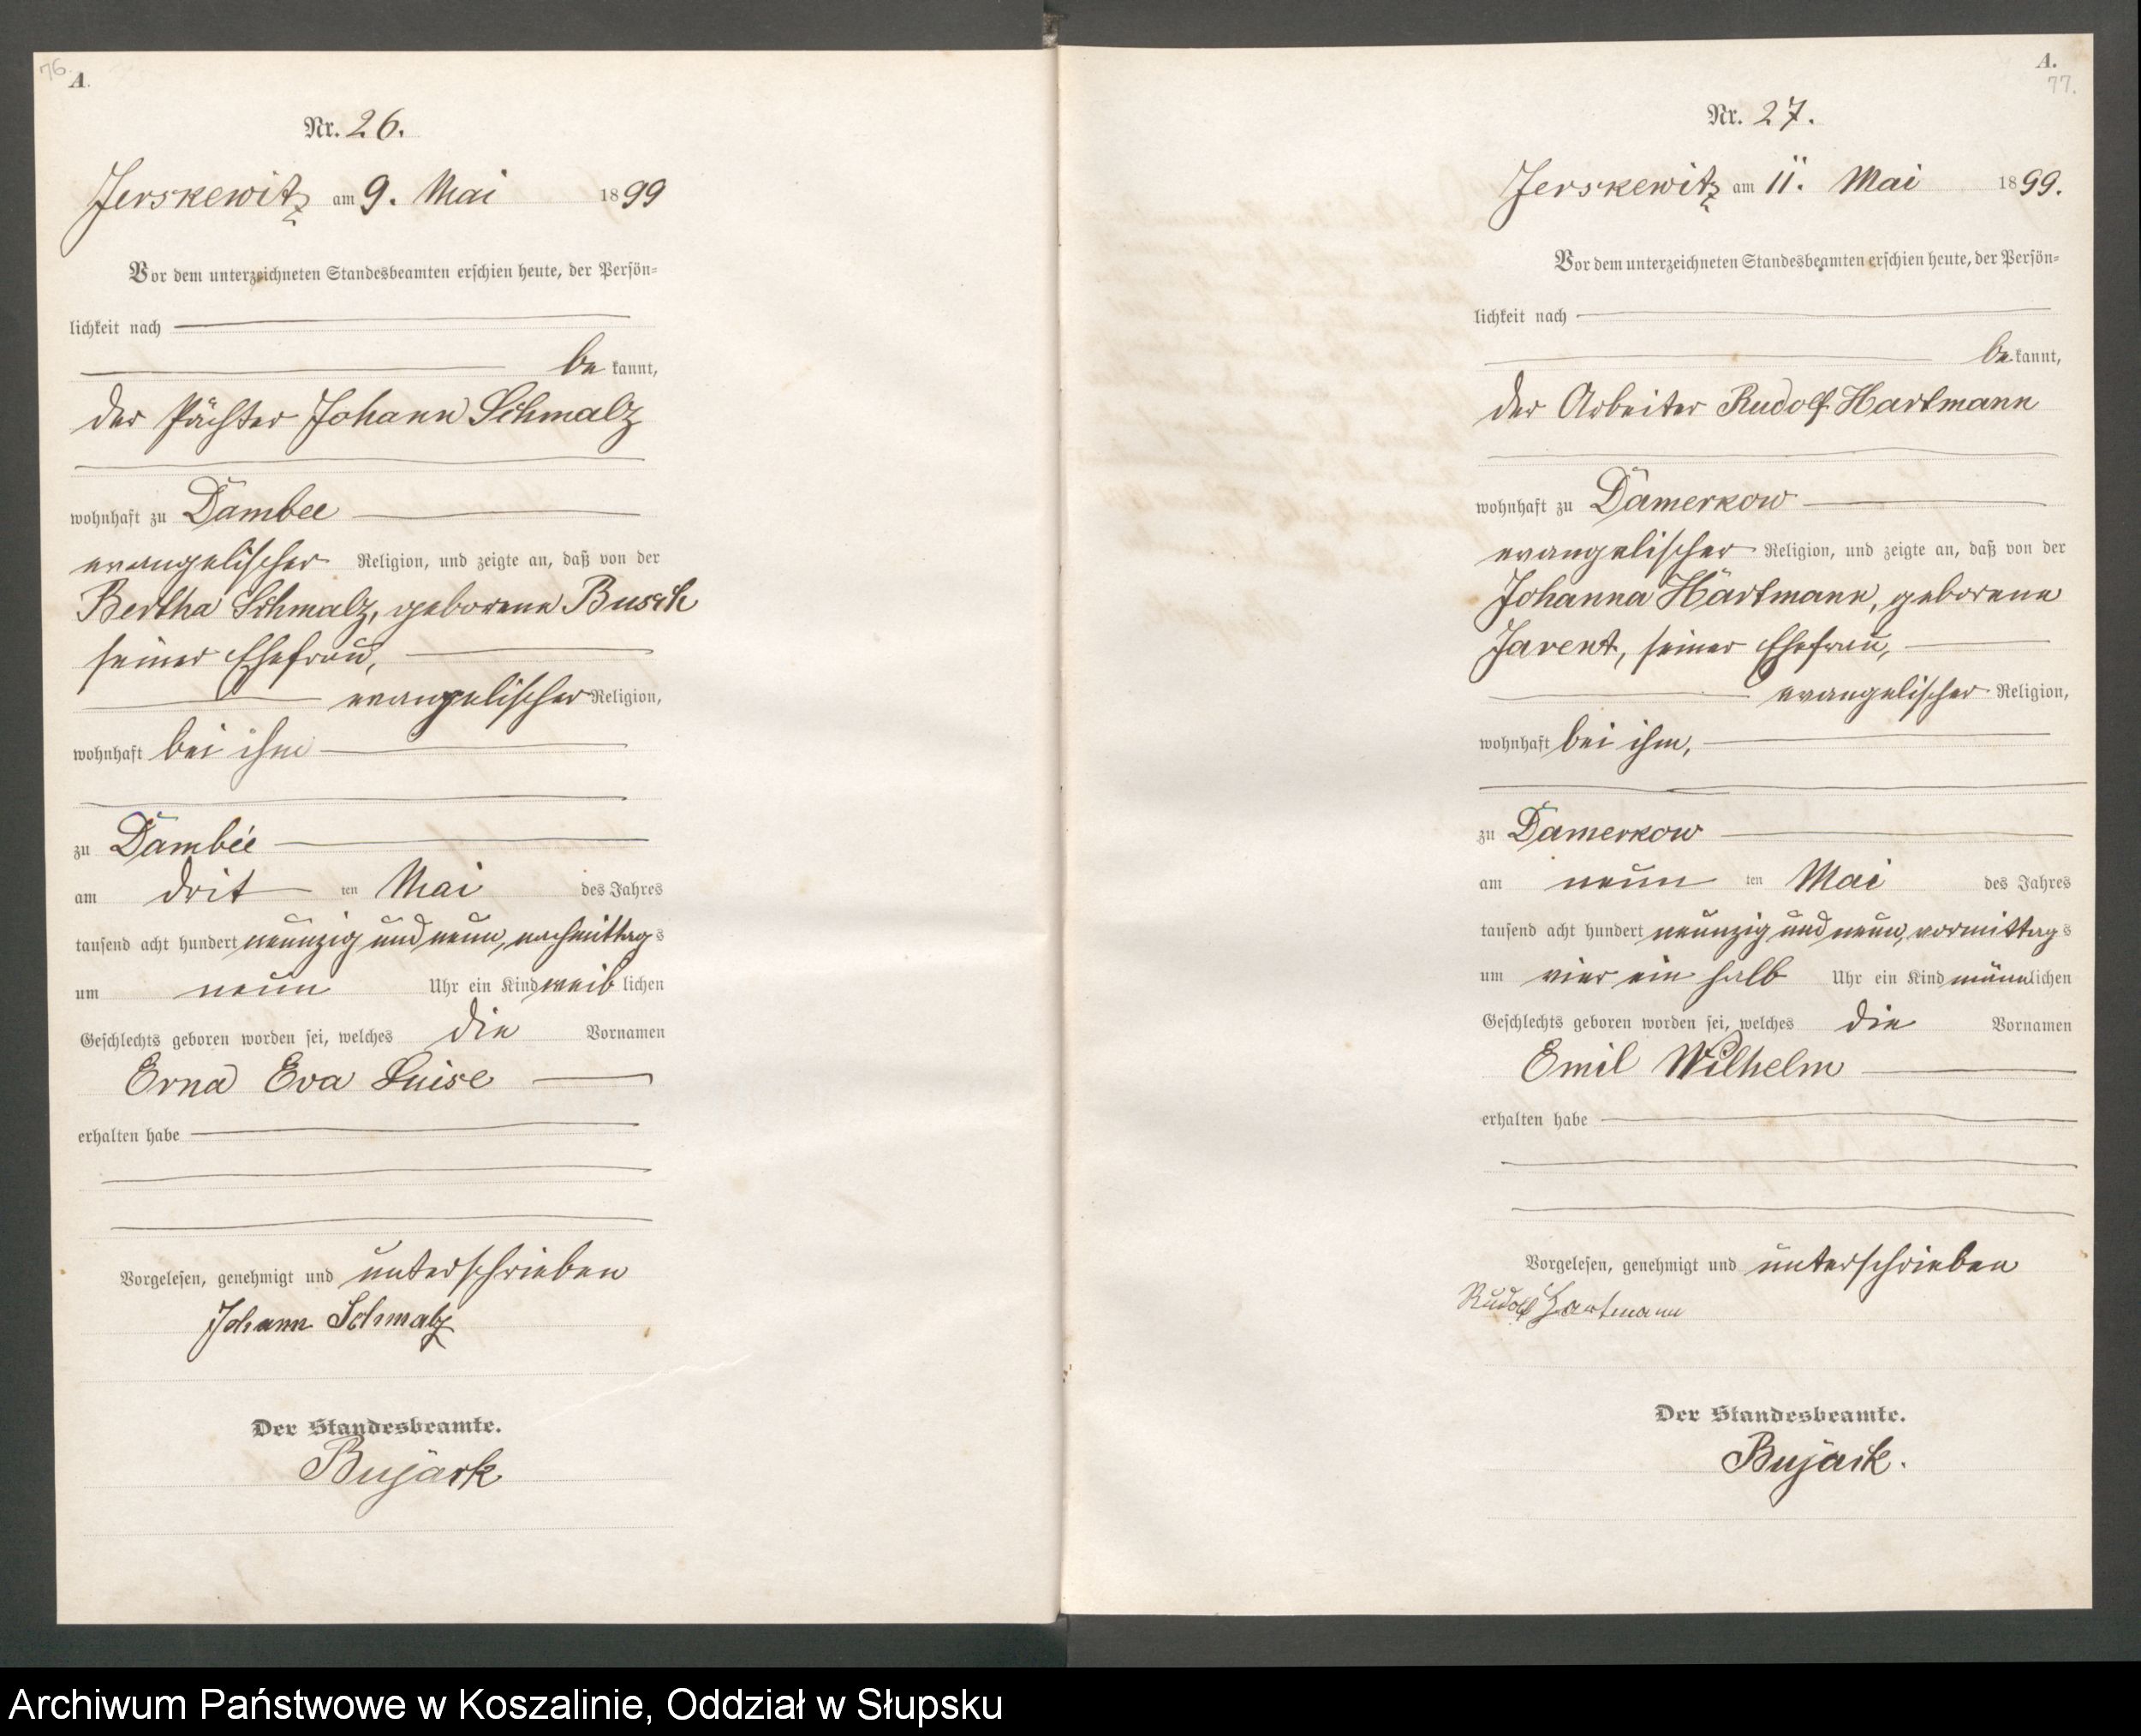 76.
A.
Nr. 26.
Jerskewitz am 9. Mai 1899
Vor dem unterzeichneten Standesbeamten erschien heute, der Persön=
lichkeit nach
be kannt,
der Pächter Johann Schmalz
wohnhaft zu Dambee
evangelischer Religion, und zeigte an, daß von der
Bertha Schmalz, geborene Busch
seiner Ehefrau,
evangelischer Religion,
wohnhaft bei ihm
zu Dambee
am drit ten Mai des Jahres
tausend acht hundert neunzig und neun, nachmittag s
um neun Uhr ein Kind weib lichen
Geschlechts geboren worden sei, welches die Vornamen
Erna Eva Luise
erhalten habe
Vorgelesen, genehmigt und unterschrieben
Johann Schmalz
Der Standesbeamte.
Bujack
A.
77.
Nr. 27.
Jerskewitz am 11. Mai 1899.
Vor dem unterzeichneten Standesbeamten erschien heute, der Persön=
lichkeit nach
be kannt,
der Arbeiter Rudolf Hartmann
wohnhaft zu Damerkow
evangelischer Religion, und zeigte an, daß von der
Johanna Hartmann, geborene
seiner Ehefrau,
evangelischer Religion,
wohnhaft bei ihm,
zu Damerkow
am neun ten Mai des Jahres
tausend acht hundert neunzig und neun, vormittag s
um vier ein halb Uhr ein Kind männ lichen
Geschlechts geboren worden sei, welches die Vornamen
Emil Wilhelm
erhalten habe
Vorgelesen, genehmigt und unterschrieben
Rudolf Hartmann
Der Standesbeamte.
Bujack.
Archiwum Państwowe w Koszalinie, Oddział w Słupsku